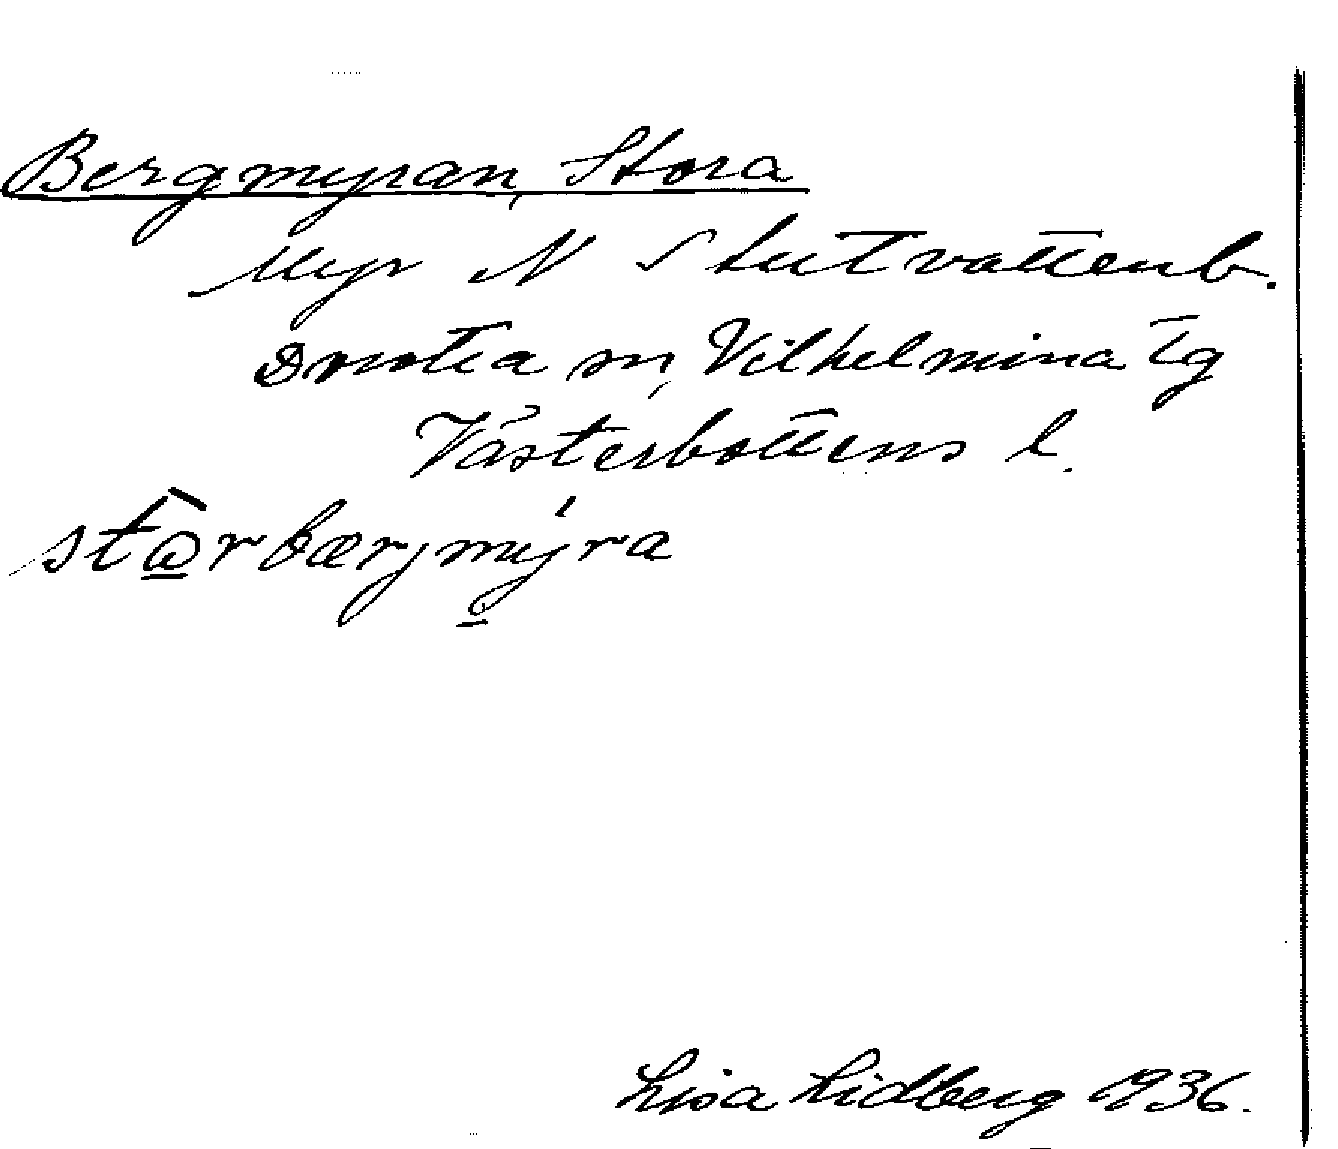 Bergmyran, Stora
Myr N Stutvattenb.
Dorotea sn, Vilhelmina tg
Västerbottens l.
stὼ̱rbærjmý̱ra
Lisa Lidberg 1936.